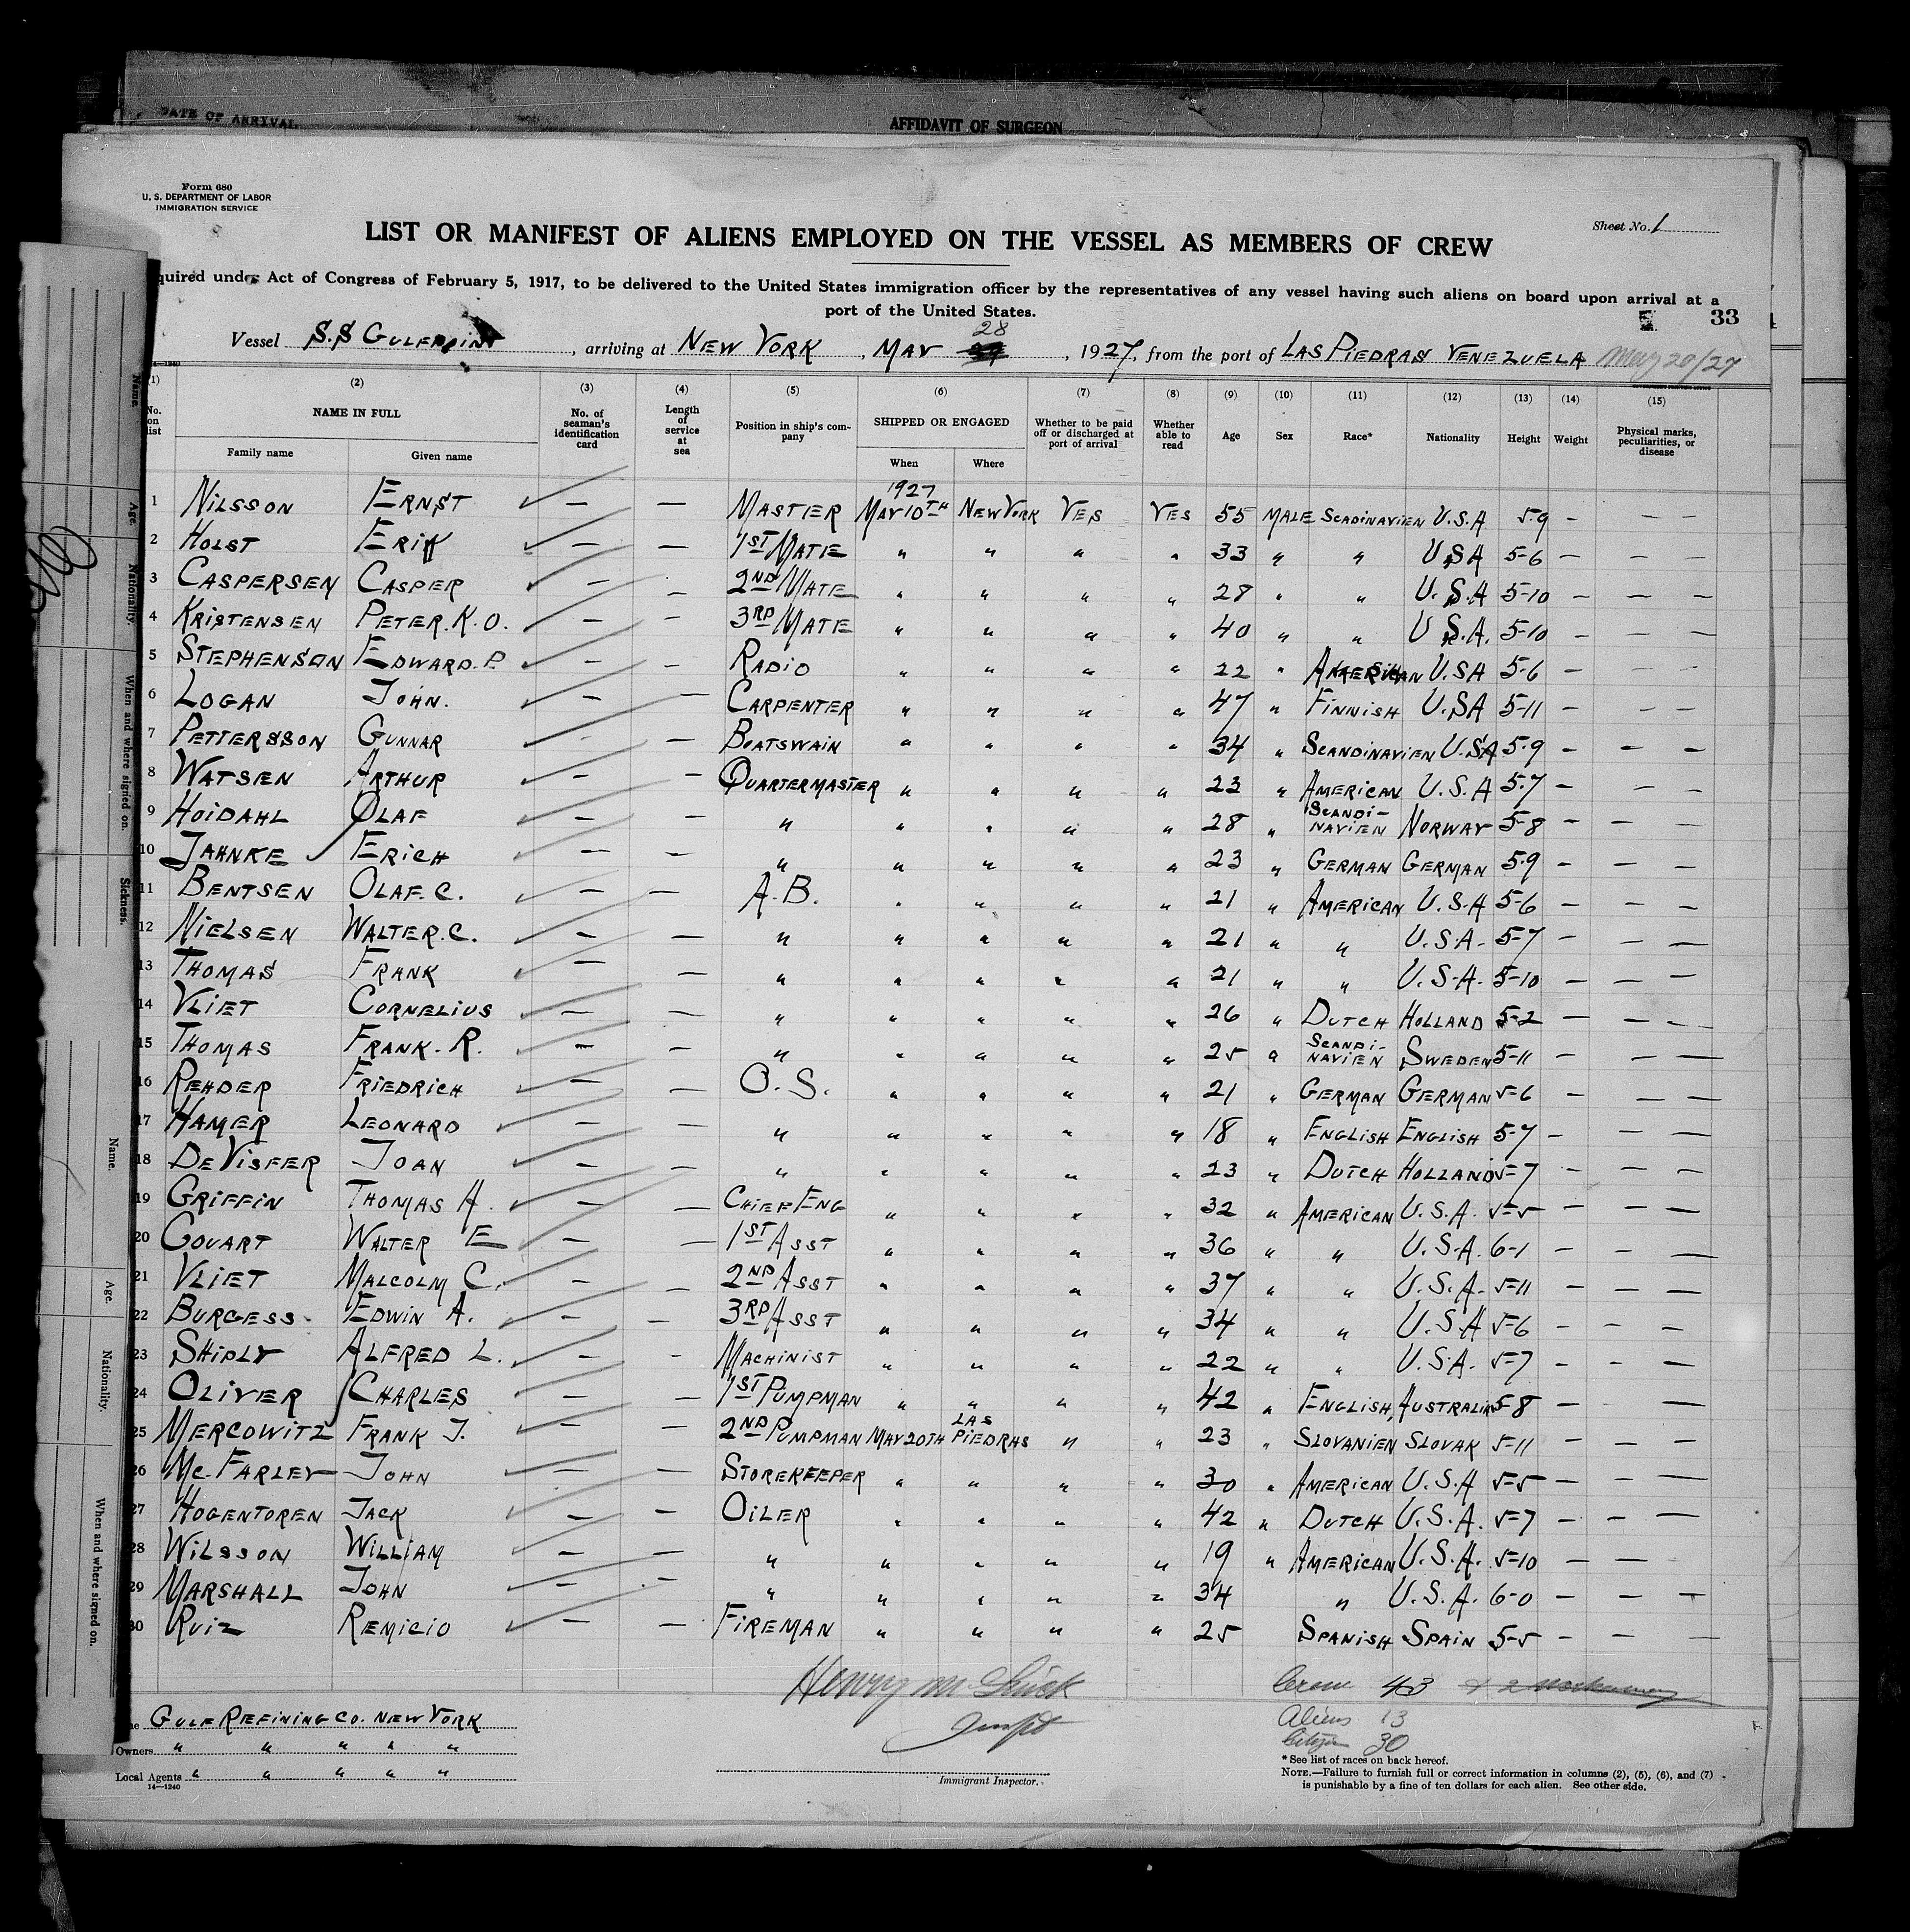 DATE OF ARRIVAL
AFFIDAVIT OF SURGEON
Form 680
U. S. DEPARTMENT OF LABOR
IMMIGRATION SERVICE
Sheet No. 1
LIST OR MANIFEST OF ALIENS EMPLOYED ON THE VESSEL AS MEMBERS OF CREW
quired under Act of Congress of February 5, 1917, to be delivered to the United States immigration officer by the representatives of any vessel having such aliens on board upon arrival at a
port of the United States.
33
Vessel S.S GULFPOINT, arriving at NEW YORK, MAY 28, 1927, from the port of LAS PIEDRAS VENEZUELA May 20/27
(1) (2) (3) (4) (5) (6) (7) (8) (9) (10) (11) (12) (13) (14) (15)
No. on list NAME IN FULL Family name Given name No. of seaman's identification card Length of service at sea Position in ship's company SHIPPED OR ENGAGED When Where Whether to be paid off or discharged at port of arrival Whether able to read Age Sex Race* Nationality Height Weight Physical marks, peculiarities, or disease
1 NILSSON ERNST — — MASTER 1927 MAY 10TH NEW YORK YES YES 55 MALE SCADINAVIEN U.S.A 5-9 — — —
2 HOLST ERIK — — 1ST MATE " " " " 33 " " U.S.A 5-6 — — —
3 CASPERSEN CASPER — — 2ND MATE " " " " 28 " " U.S.A 5-10 — — —
4 KRISTENSEN PETER.K.O. — — 3RD MATE " " " " 40 " " U.S.A. 5-10 — — —
5 STEPHENSON EDWARD.P. — — RADIO " " " " 22 " AMERICAN U.SA 5-6 — — —
6 LOGAN JOHN. — — CARPENTER " " " " 47 " FINNISH U.SA 5-11 — — —
7 PETTERSSON GUNNAR — — BOATSWAIN " " " " 34 " SCANDINAVIEN U.SA 5-9 — — —
8 WATSEN ARTHUR — — QUARTERMASTER " " " " 23 " AMERICAN U.S.A 5-7 — — —
9 HOIDAHL OLAF — — " " " " " 28 " SCANDI-NAVIEN NORWAY 5-8 — — —
10 JAHNKE ERICH — — " " " " " 23 " GERMAN GERMAN 5-9 — — —
11 BENTSEN OLAF.C. — — A.B. " " " " 21 " AMERICAN U.S.A 5-6 — — —
12 NIELSEN WALTER.C. — — " " " " " 21 " " U.S.A. 5-7 — — —
13 THOMAS FRANK — — " " " " " 21 " " U.S.A. 5-10 — — —
14 VLIET CORNELIUS — — " " " " " 26 " DUTCH HOLLAND 5-2 — — —
15 THOMAS FRANK.R. — — " " " " " 25 " SCANDI-NAVIEN SWEDEN 5-11 — — —
16 REHDER FRIEDRICH — — O.S. " " " " 21 " GERMAN GERMAN 5-6 — — —
17 HAMER LEONARD — — " " " " " 18 " ENGLISH ENGLISH 5-7 — — —
18 DEVISFER JOAN — — " " " " " 23 " DUTCH HOLLAND 5-7 — — —
19 GRIFFIN THOMAS H. — — CHIEF ENG " " " " 32 " AMERICAN U.S.A. 5-5 — — —
20 COUART WALTER E — — 1ST ASST " " " " 36 " " U.S.A. 6-1 — — —
21 VLIET MALCOLM C. — — 2ND ASST " " " " 37 " " U.S.A. 5-11 — — —
22 BURGESS EDWIN A. — — 3RD ASST " " " " 34 " " U.S.A 5-6 — — —
23 SHIPLY ALFRED L. — — MACHINIST " " " " 22 " " U.S.A. 5-7 — — —
24 OLIVER CHARLES — — 1ST PUMPMAN " " " " 42 " ENGLISH AUSTRALIAN 5-8 — — —
25 MERCOWITZ FRANK J. — — 2ND PUMPMAN MAY 20TH LAS PIEDRAS " " 23 " SLOVANIEN SLOVAK 5-11 — — —
26 Mc.FARLEY JOHN — — STOREKEEPER " " " " 30 " AMERICAN U.S.A 5-5 — — —
27 HOGENTOREN JACK — — OILER " " " " 42 " DUTCH U.S.A. 5-7 — — —
28 WILSSON WILLIAM — — " " " " " 19 " AMERICAN U.S.A. 5-10 — —
29 MARSHALL JOHN — — " " " " " 34 " U.S.A. 6-0 — — —
30 RUIZ REMICIO — — FIREMAN " " " " 25 SPANISH SPAIN 5-5 — — —
Crew 43
Aliens 13
Citizen 30
GULF REFINING CO. NEW YORK
Owners " " " " "
Local Agents " " " " "
14—1240
Immigrant Inspector.
*See list of races on back hereof.
NOTE.—Failure to furnish full or correct information in columns (2), (5), (6), and (7)
is punishable by a fine of ten dollars for each alien. See other side.
Name
Age.
Nationality.
When and where signed on.
Sickness.
Name.
Age.
Nationality.
When and where signed on.